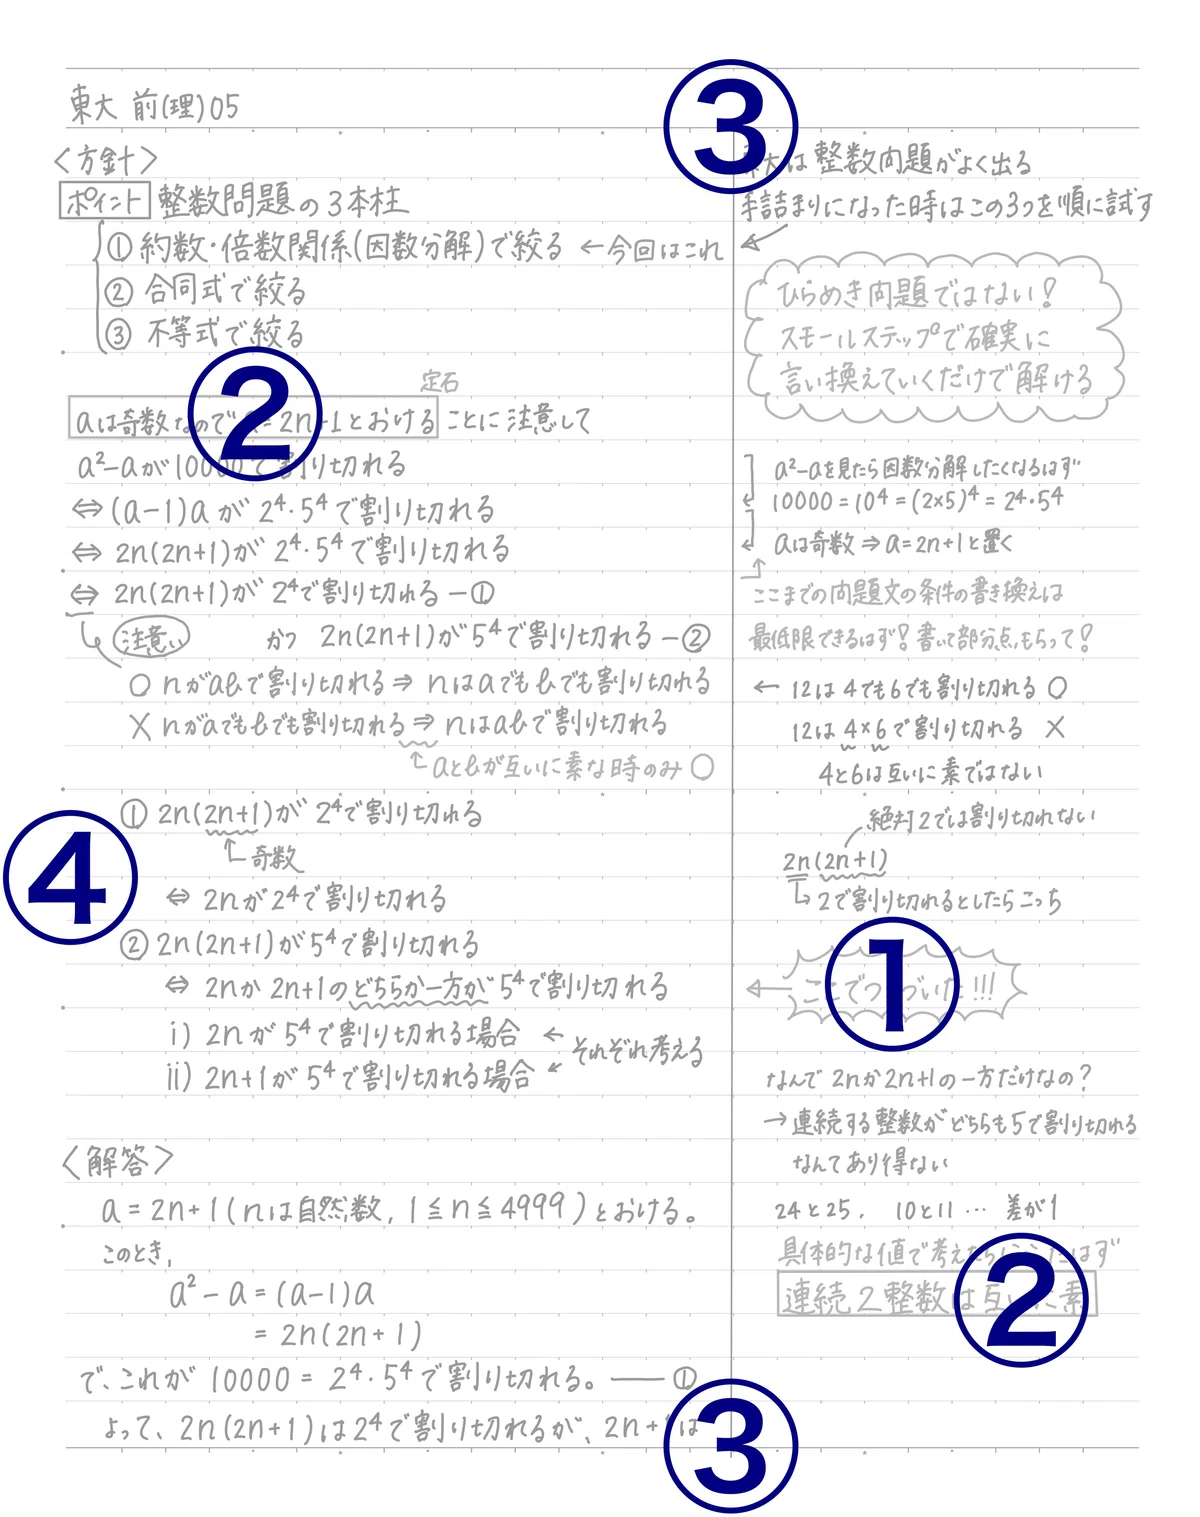 東大 前(理)05
<方針>
ポイント 整数問題の3本柱
① 約数・倍数関係(因数分解)で絞る ←今回はこれ
② 合同式で絞る
③ 不等式で絞る
定石
aは奇数なので a=2n+1とおける ことに注意して
a²-aが10000で割り切れる
⇔(a-1)aが 2⁴・5⁴で割り切れる
⇔ 2n(2n+1)が 2⁴・5⁴で割り切れる
⇔ 2n(2n+1)が 2⁴で割り切れる ー①
注意 かつ 2n(2n+1)が5⁴で割り切れる ー②
○ nがabで割り切れる⇒ nはaでもbでも割り切れる
× nがaでもbでも割り切れる⇒ nはabで割り切れる
aとbが互いに素な時のみ○
① 2n(2n+1)が 2⁴で割り切れる
奇数
⇔ 2nが2⁴で割り切れる
② 2n(2n+1)が5⁴で割り切れる
⇔ 2nか 2n+1のどちらか一方が5⁴で割り切れる
i) 2nが 5⁴で割り切れる場合 ←
ii) 2n+1が 5⁴で割り切れる場合 ←
それぞれ考える
<解答>
a=2n+1(nは自然数, 1≦n≦4999)とおける。
このとき,
a²-a=(a-1)a
=2n(2n+1)
で、これが 10000=2⁴・5⁴で割り切れる。――①
よって、2n(2n+1)は2⁴で割り切れるが、2n+1は
③
東大は整数問題がよく出る
手詰まりになった時はこの3つを順に試す
ひらめき問題ではない!
スモールステップで確実に
言い換えていくだけで解ける
②
a²-aを見たら因数分解したくなるはず
10000=10⁴=(2×5)⁴=2⁴・5⁴
aは奇数⇒a=2n+1と置く
ここまでの問題文の条件の書き換えは
最低限できるはず!書いて部分点もらって!
← 12は4でも6でも割り切れる ○
12は4×6で割り切れる ×
4と6は互いに素ではない
絶対2では割り切れない
2n(2n+1)
2で割り切れるとしたらこっち
④
①
← ここでつまづいた!!!
なんで2nか2n+1の一方だけなの?
→連続する整数がどちらも5で割り切れる
なんてあり得ない
24と25, 10と11… 差が1
具体的な値で考えたら
連続2整数は互いに素
②
③